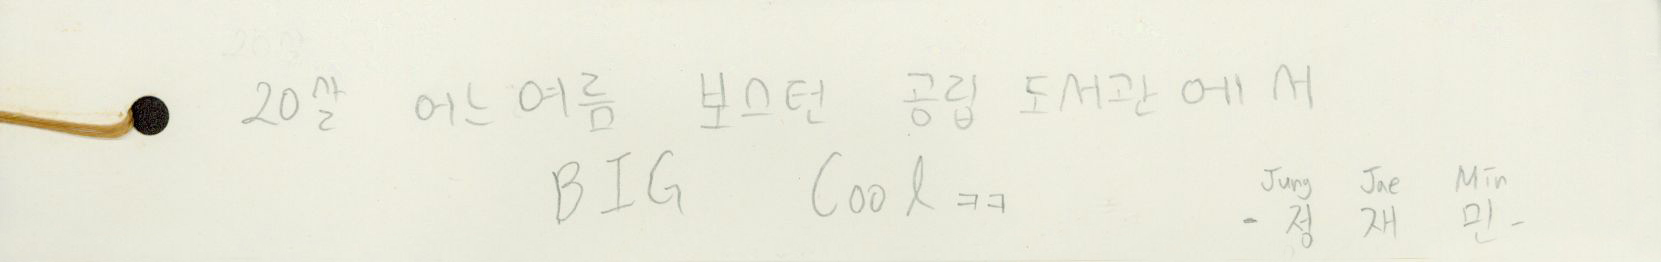 20살 어느 여름 보스턴 공립 도서관에서
BIG Cool ㅋㅋ
Jung Jae Min
- 정 재 민 -